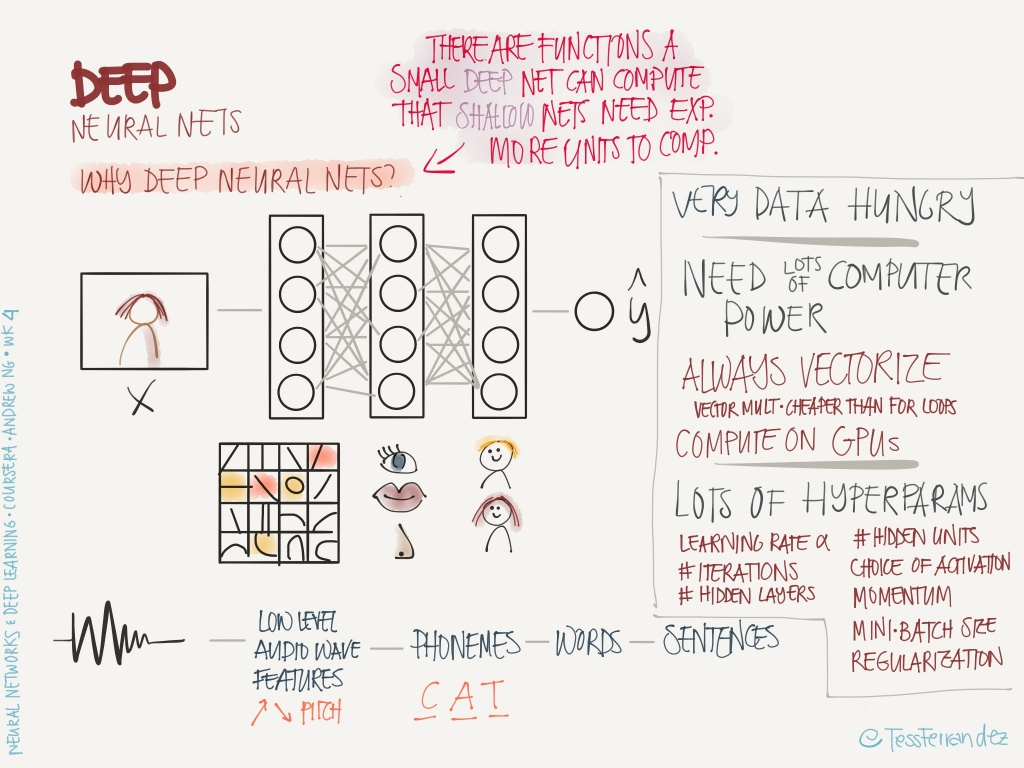 DEEP
NEURAL NETS
THERE ARE FUNCTIONS A
SMALL DEEP NET CAN COMPUTE
THAT SHALLOW NETS NEED EXP.
MORE UNITS TO COMP.
WHY DEEP NEURAL NETS?
X
ŷ
LOW LEVEL
AUDIO WAVE
FEATURES
PITCH
PHONEMES
CAT
WORDS
SENTENCES
VERY DATA HUNGRY
NEED LOTS OF COMPUTER
POWER
ALWAYS VECTORIZE
VECTOR MULT · CHEAPER THAN FOR LOOPS
COMPUTE ON GPUs
LOTS OF HYPERPARAMS
LEARNING RATE α
# ITERATIONS
# HIDDEN LAYERS
# HIDDEN UNITS
CHOICE OF ACTIVATION
MOMENTUM
MINI-BATCH SIZE
REGULARIZATION
NEURAL NETWORKS & DEEP LEARNING · COURSERA · ANDREW NG · WK 4
@TessFerrandez